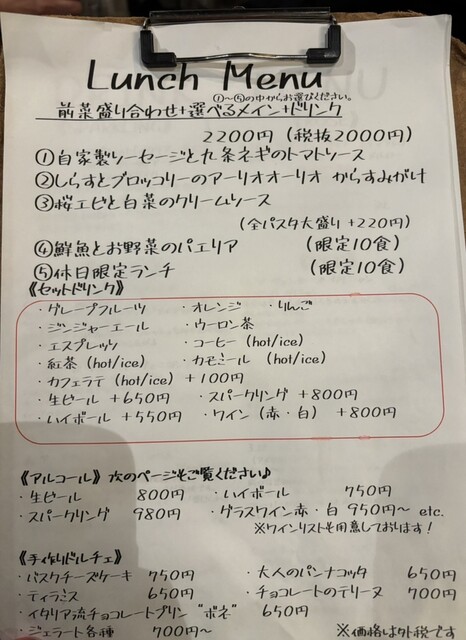 Lunch Menu
①〜⑤の中からお選びください。
前菜盛り合わせ+選べるメイン+ドリンク
2200円 (税抜2000円)
①自家製ソーセージと九条ネギのトマトソース
②しらすとブロッコリーのアーリオオーリオ からすみがけ
③桜エビと白菜のクリームソース
(全パスタ大盛り +220円)
④鮮魚とお野菜のパエリア (限定10食)
⑤休日限定ランチ (限定10食)
《セットドリンク》
・グレープフルーツ ・オレンジ ・りんご
・ジンジャーエール ・ウーロン茶
・エスプレッソ ・コーヒー (hot/ice)
・紅茶 (hot/ice) ・カモミール (hot/ice)
・カフェラテ (hot/ice) +100円
・生ビール +650円 ・スパークリング +800円
・ハイボール +550円 ・ワイン (赤・白) +800円
《アルコール》 次のページもご覧ください♪
・生ビール 800円 ・ハイボール 750円
・スパークリング 980円 ・グラスワイン赤・白 950円〜 etc.
※ワインリストも用意しております!
《手作りドルチェ》
・バスクチーズケーキ 750円 ・大人のパンナコッタ 650円
・ティラミス 650円 ・チョコレートのテリーヌ 700円
・イタリア流チョコレートプリン "ボネ" 650円
・ジェラート各種 700円〜 ※価格は外税です